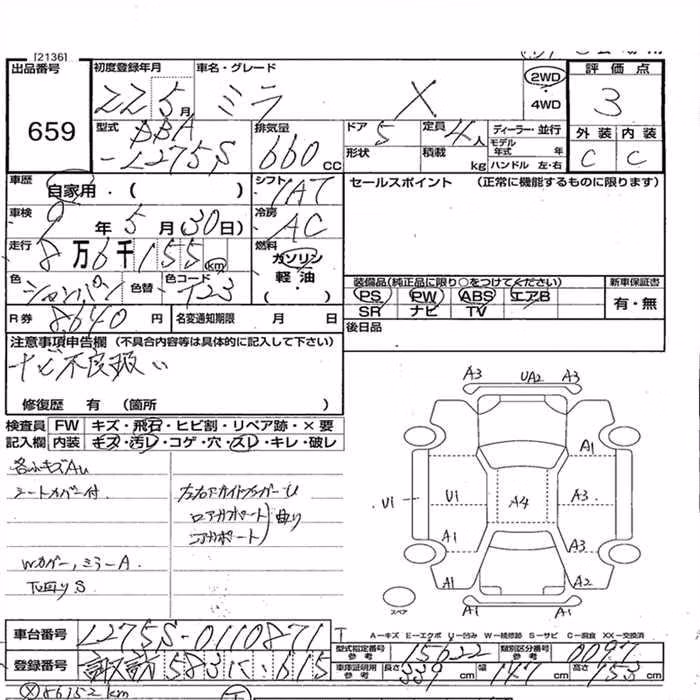 [2136]
出品番号 初度登録年月 車名・グレード 2WD 評価点
22 5月 ミラ X 3
・4WD
659
型式 排気量 ドア 定員 ディーラー・並行 外装 内装
DBA 5 4人 モデル年式 年 C C
-L275S 660cc 形状 積載 kg ハンドル 左・右
車歴 自家用・( ) シフト IAT セールスポイント (正常に機能するものに限ります)
車検 9年5月(30日) 冷房 AC
走行 8万6千155km 燃料 ガソリン
軽油
・( )
色 シャンパン 色替 色コード T23
装備品(純正品に限り○をつけてください) 新車保証書
PS PW ABS エアB 有・無
SR ナビ TV
R券 8640円 名変通知期限 月 日 後日品
注意事項申告欄 (不具合内容等は具体的に記入して下さい)
ナビ不良扱い
修復歴 有 (箇所 )
検査員 FW キズ・飛石・ヒビ割・リペア跡・×要
記入欄 内装 キズ・汚レ・コゲ・穴・スレ・キレ・破レ
各ふキズAU
シートカバー付
ロアサポート 曲り
Wカバー,ミラーA
A3 UA2 A3
A1
U1 U1 A4 A3
A1 A3
A1 A2
スペア A1 A1
車台番号 L275S-0110871
A—キズ E—エクボ U—凹み W—補修跡 S—サビ C—腐食 XX—交換済
型式指定番号 参考 15622 類別区分番号 参考 0097
登録番号 諏訪 583 に 615
車庫証明用 参考 長さ 339cm 幅 147cm 高さ 153cm
86152km